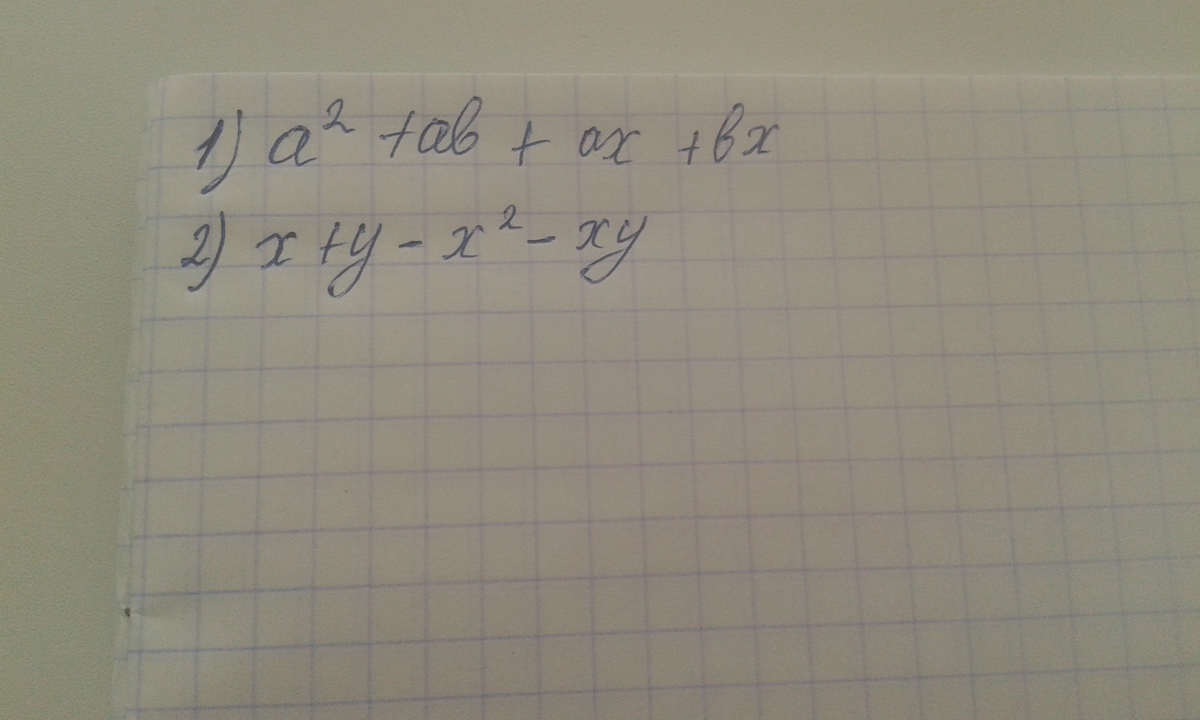 1) a² + ab + ax + bx
2) x + y - x² - xy